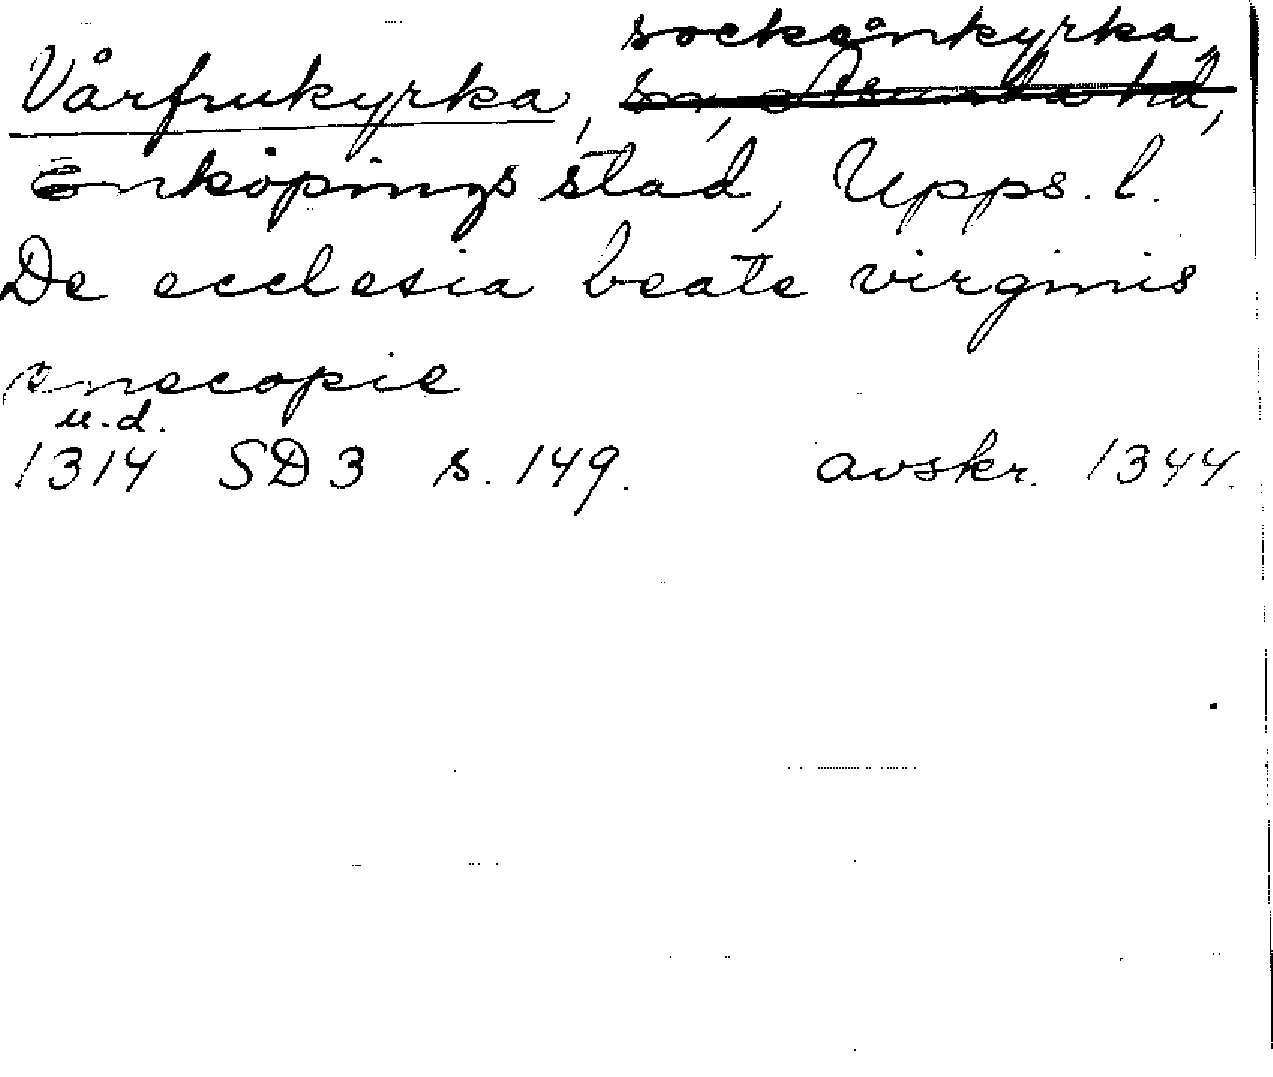 sockenkyrka
Vårfrukyrka, sn, Åsunda hd,
Enköpings stad, Upps. l.
De ecclesia beate virginis
enecopie
u.d.
1314 SD3 s. 149. avskr. 1344.